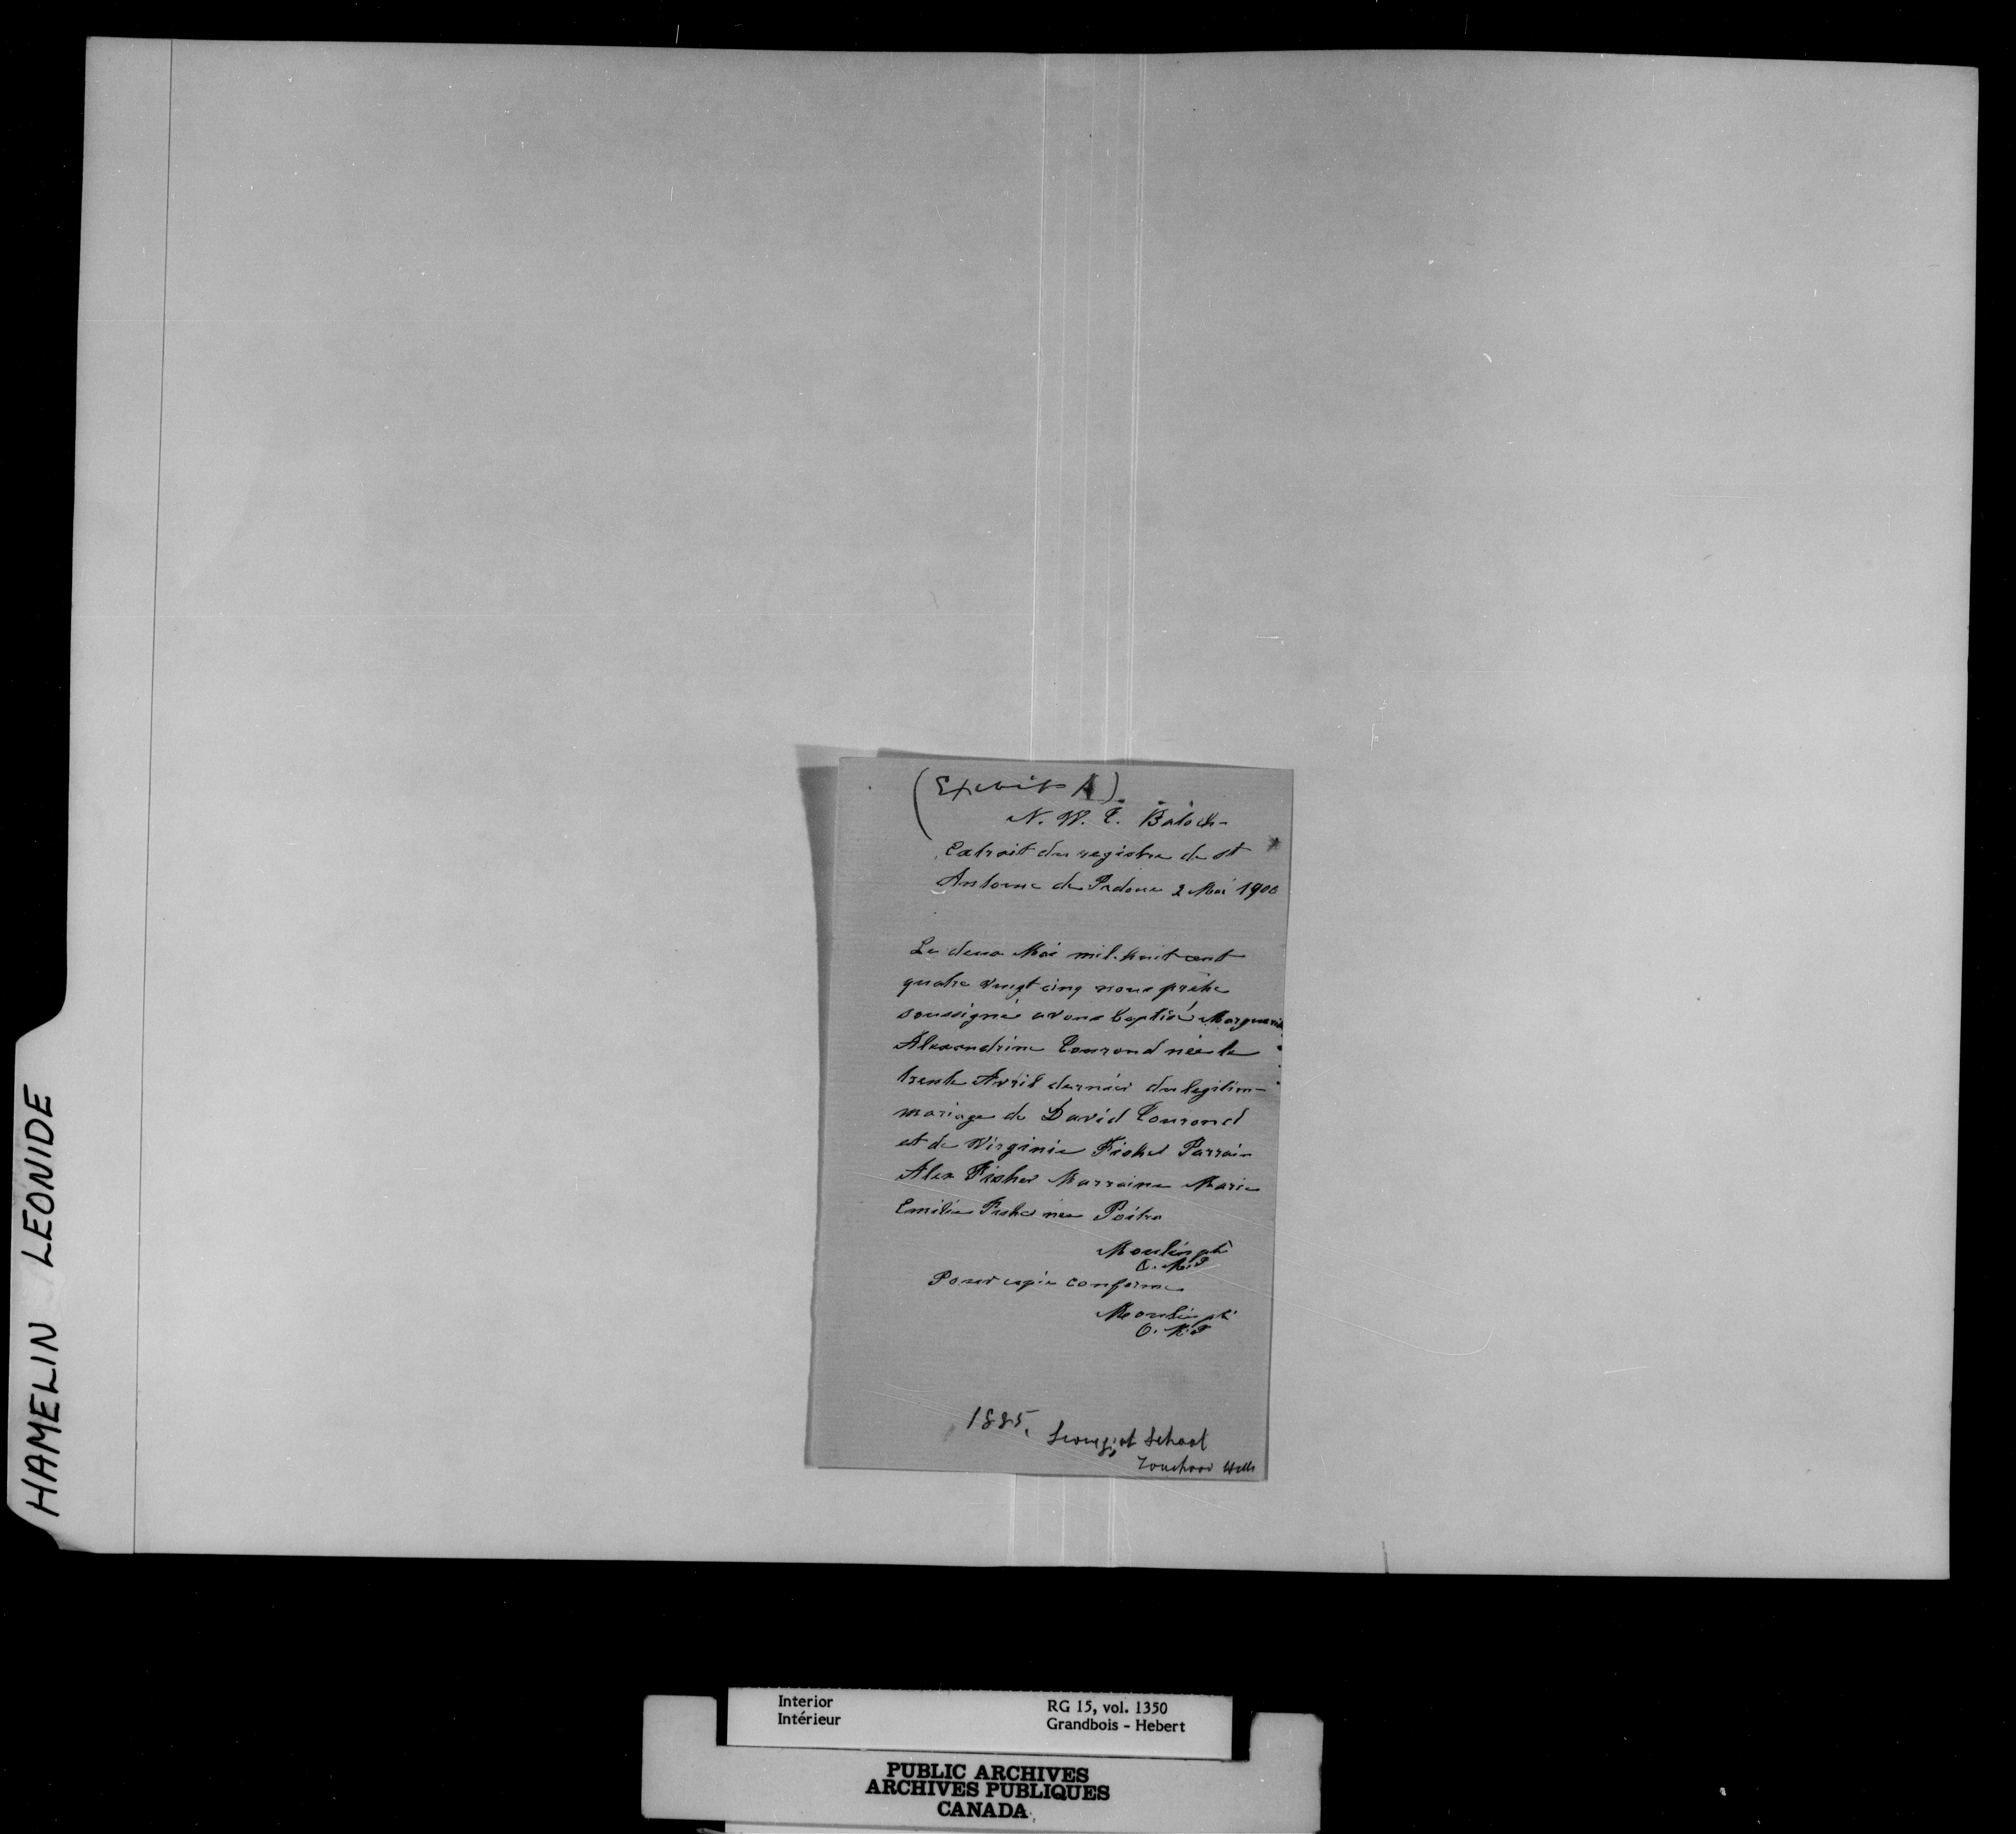 (Exhibit A)
N. W. T. Batoch-
Extrait du registre de St
Antoine de Padoue 2 Mai 1900
Le deux Mai mil-huit cent
quatre vingt cinq nous prêtre
soussigné avons baptisé Marguerite
Alexandrine Tourond née le
trente Avril dernier du legitim-
mariage de David Tourond
et de Virginie Fisher Parrain
Alex Fisher Marraine Marie
Emilie Fisher née Poitra
Moulin ptr
O.M.I
Pour copie conforme
Moulin ptr
O.M.I
1885.
School
Touchood Hills
HAMELIN LEONIDE
Interior
Intérieur
RG 15, vol. 1350
Grandbois - Hebert
PUBLIC ARCHIVES
ARCHIVES PUBLIQUES
CANADA